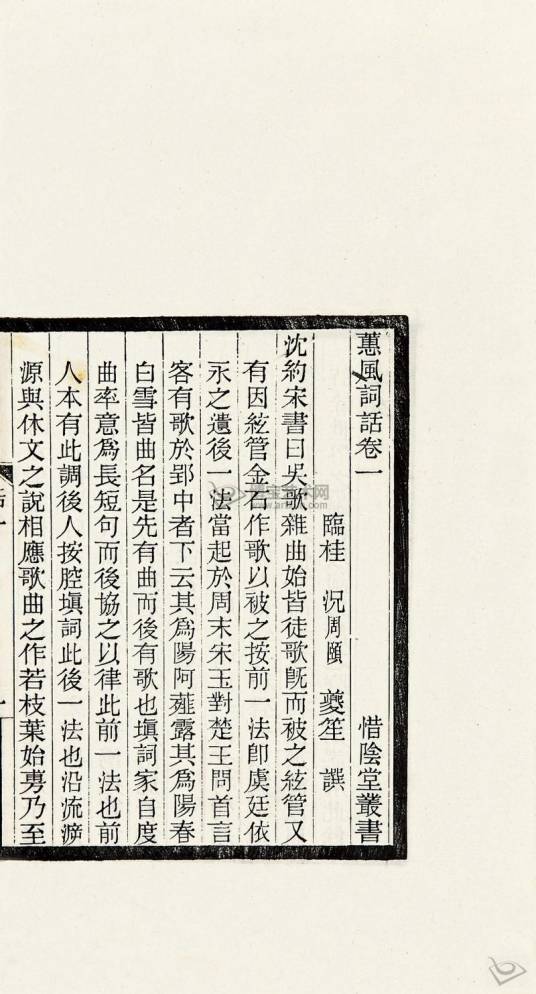 蕙風詞話卷一 惜陰堂叢書
臨桂 況周頤 夔笙 譔
沈約宋書曰吳歌雜曲始皆徒歌旣而被之絃管又
有因絃管金石作歌以被之按前一法卽虞廷依
永之遺後一法當起於周末宋玉對楚王問首言
客有歌於郢中者下云其爲陽阿薤露其爲陽春
白雪皆曲名是先有曲而後有歌也塡詞家自度
曲率意爲長短句而後協之以律此前一法也前
人本有此調後人按腔塡詞此後一法也沿流溯
源與休文之說相應歌曲之作若枝葉始旉乃至